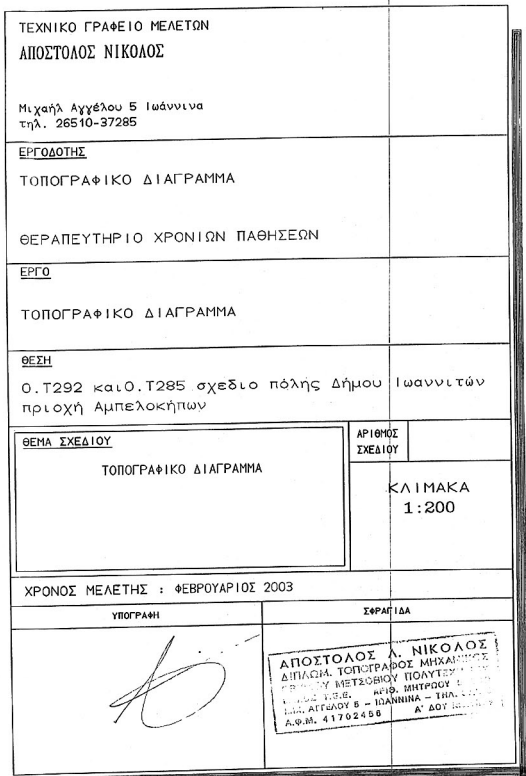 ΤΕΧΝΙΚΟ ΓΡΑΦΕΙΟ ΜΕΛΕΤΩΝ
ΑΠΟΣΤΟΛΟΣ ΝΙΚΟΛΟΣ
Μιχαήλ Αγγέλου 5 Ιωάννινα
τηλ. 26510-37285
ΕΡΓΟΔΟΤΗΣ
ΤΟΠΟΓΡΑΦΙΚΟ ΔΙΑΓΡΑΜΜΑ
ΘΕΡΑΠΕΥΤΗΡΙΟ ΧΡΟΝΙΩΝ ΠΑΘΗΣΕΩΝ
ΕΡΓΟ
ΤΟΠΟΓΡΑΦΙΚΟ ΔΙΑΓΡΑΜΜΑ
ΘΕΣΗ
Ο.Τ292 καιΟ.Τ285 σχεδιο πόλης Δήμου Ιωαννιτών
πριοχή Αμπελοκήπων
ΘΕΜΑ ΣΧΕΔΙΟΥ
ΤΟΠΟΓΡΑΦΙΚΟ ΔΙΑΓΡΑΜΜΑ
ΑΡΙΘΜΟΣ
ΣΧΕΔΙΟΥ
ΚΛΙΜΑΚΑ
1:200
ΧΡΟΝΟΣ ΜΕΛΕΤΗΣ : ΦΕΒΡΟΥΑΡΙΟΣ 2003
ΥΠΟΓΡΑΦΗ
ΣΦΡΑΓΙΔΑ
ΑΠΟΣΤΟΛΟΣ Λ. ΝΙΚΟΛΟΣ
ΔΙΠΛΩΜ. ΤΟΠΟΓΡΑΦΟΣ ΜΗΧΑΝΙΚΟΣ
ΜΕΤΣΟΒΙΟΥ
Τ.Ε.Ε. ΑΡΙΘ. ΜΗΤΡΩΟΥ
ΑΓΓΕΛΟΥ 5 - ΙΩΑΝΝΙΝΑ - ΤΗΛ.
Α.Φ.Μ. 41702456 Α' ΔΟΥ